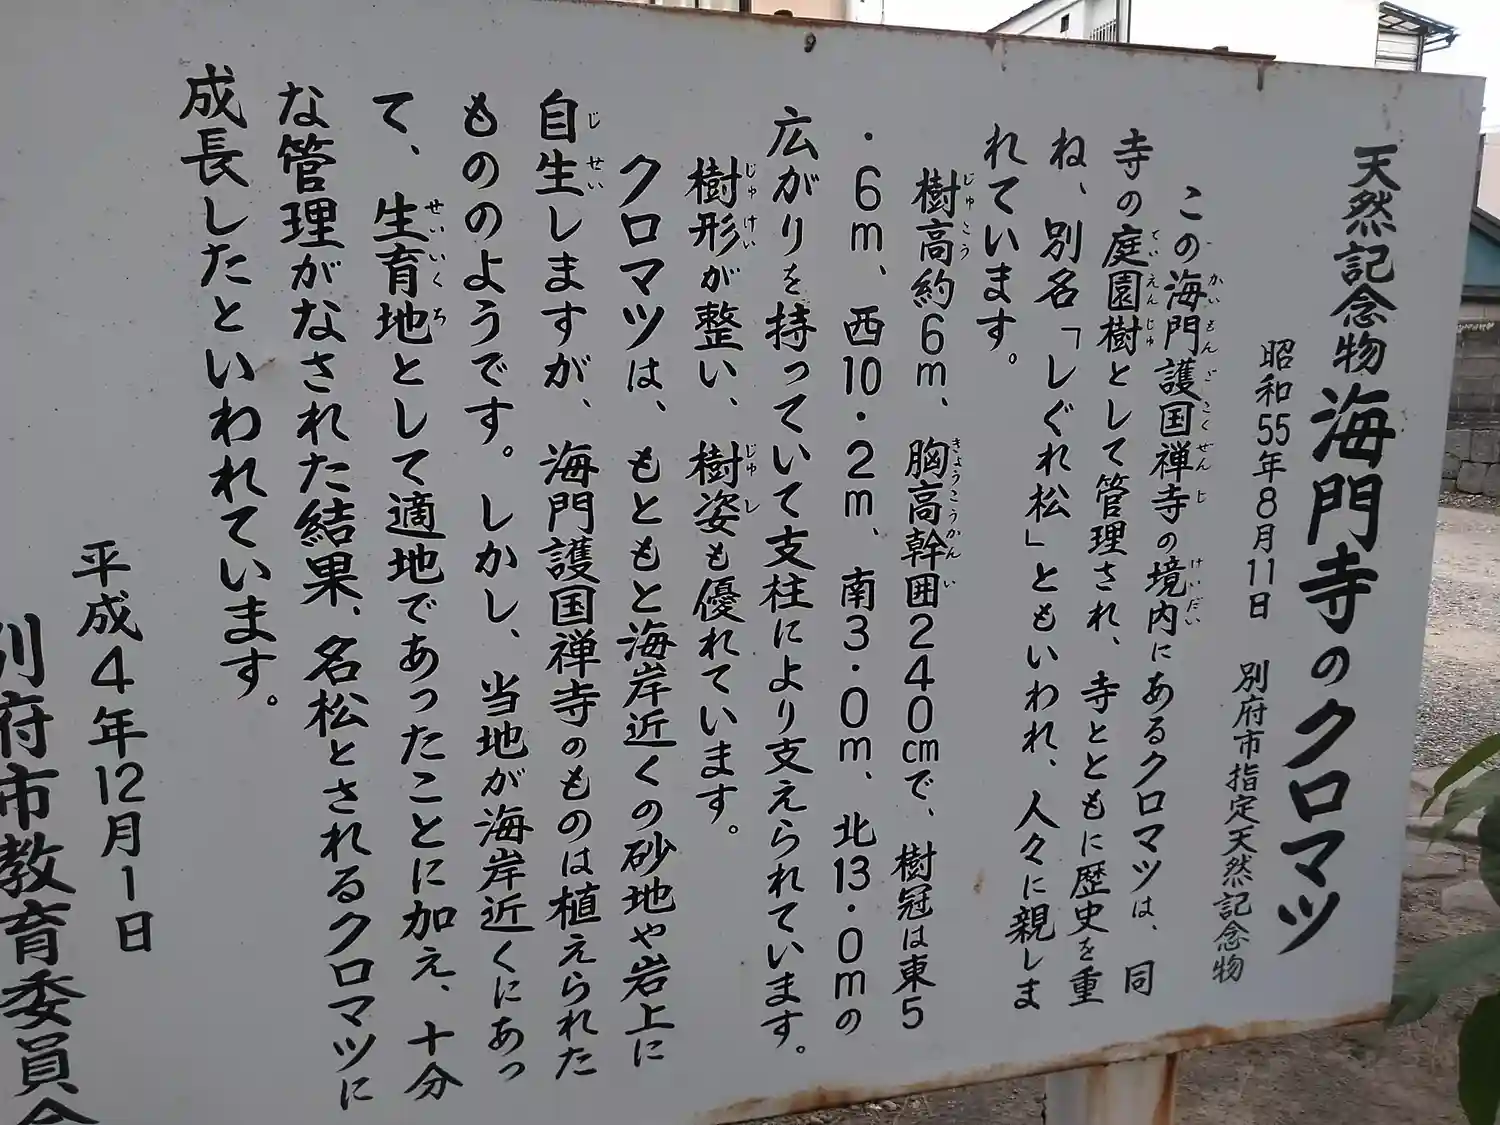 天然記念物 海門寺のクロマツ
昭和55年8月11日 別府市指定天然記念物
この海門護国禅寺の境内にあるクロマツは、同
寺の庭園樹として管理され、寺とともに歴史を重
ね、別名「しぐれ松」ともいわれ、人々に親しま
れています。
樹高約6m、胸高幹囲240cmで、樹冠は東5
・6m、西10・2m、南3・0m、北13・0mの
広がりを持っていて支柱により支えられています。
樹形が整い、樹姿も優れています。
クロマツは、もともと海岸近くの砂地や岩上に
自生しますが、海門護国禅寺のものは植えられた
もののようです。しかし、当地が海岸近くにあっ
て、生育地として適地であったことに加え、十分
な管理がなされた結果、名松とされるクロマツに
成長したといわれています。
平成4年12月1日
別府市教育委員会